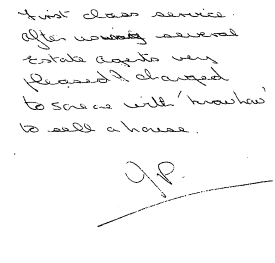 First class service.
After using several
Estate Agents very
pleased I changed
to someone with 'know how'
to sell a house.
J.P.